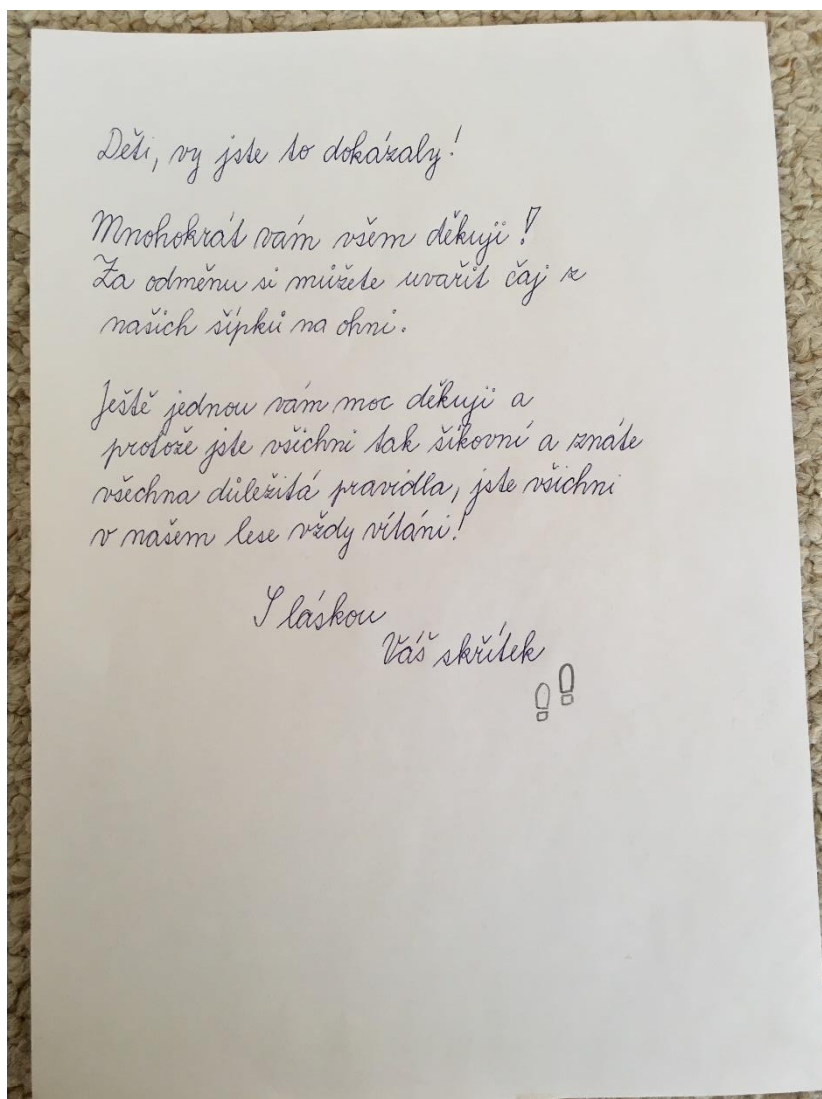 Děti, vy jste to dokázaly!
Mnohokrát vám všem děkuji!
Za odměnu si můžete uvařit čaj z
našich šípků na ohni.
Ještě jednou vám moc děkuji a
protože jste všichni tak šikovní a znáte
všechna důležitá pravidla, jste všichni
v našem lese vždy vítáni!
S láskou
Váš skřítek